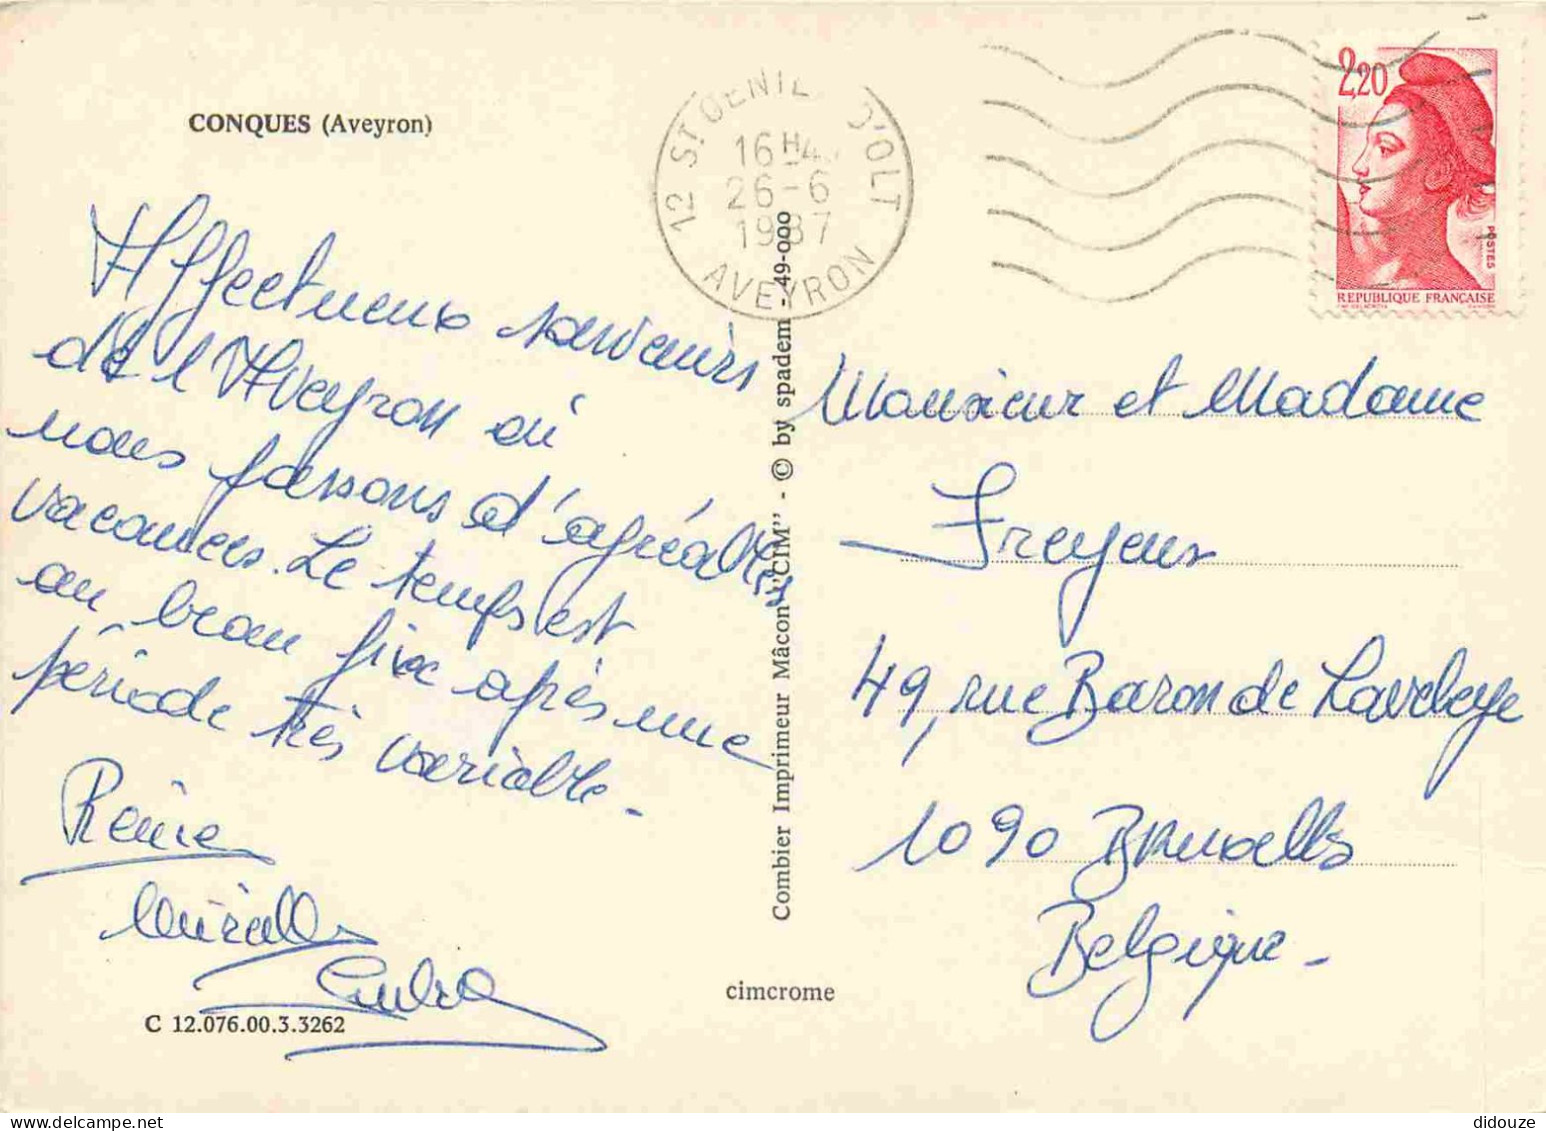 CONQUES (Aveyron)
Affectueux souvenirs
de l'Aveyron où
nous passons d'agréables
vacances. Le temps est
au beau fixe après une
période très variable.
Mireille
C 12.076.00.3.3262
Combier Imprimeur Mâcon "CIM" - © by spadem - 49-000
cimcrome
12 ST GENIE D'OLT
16H4
26-6
1987
AVEYRON
2,20
POSTES
REPUBLIQUE FRANÇAISE
Monsieur et Madame
49, rue Baron de Laveleye
1090 Bruxelles
Belgique -
didouze